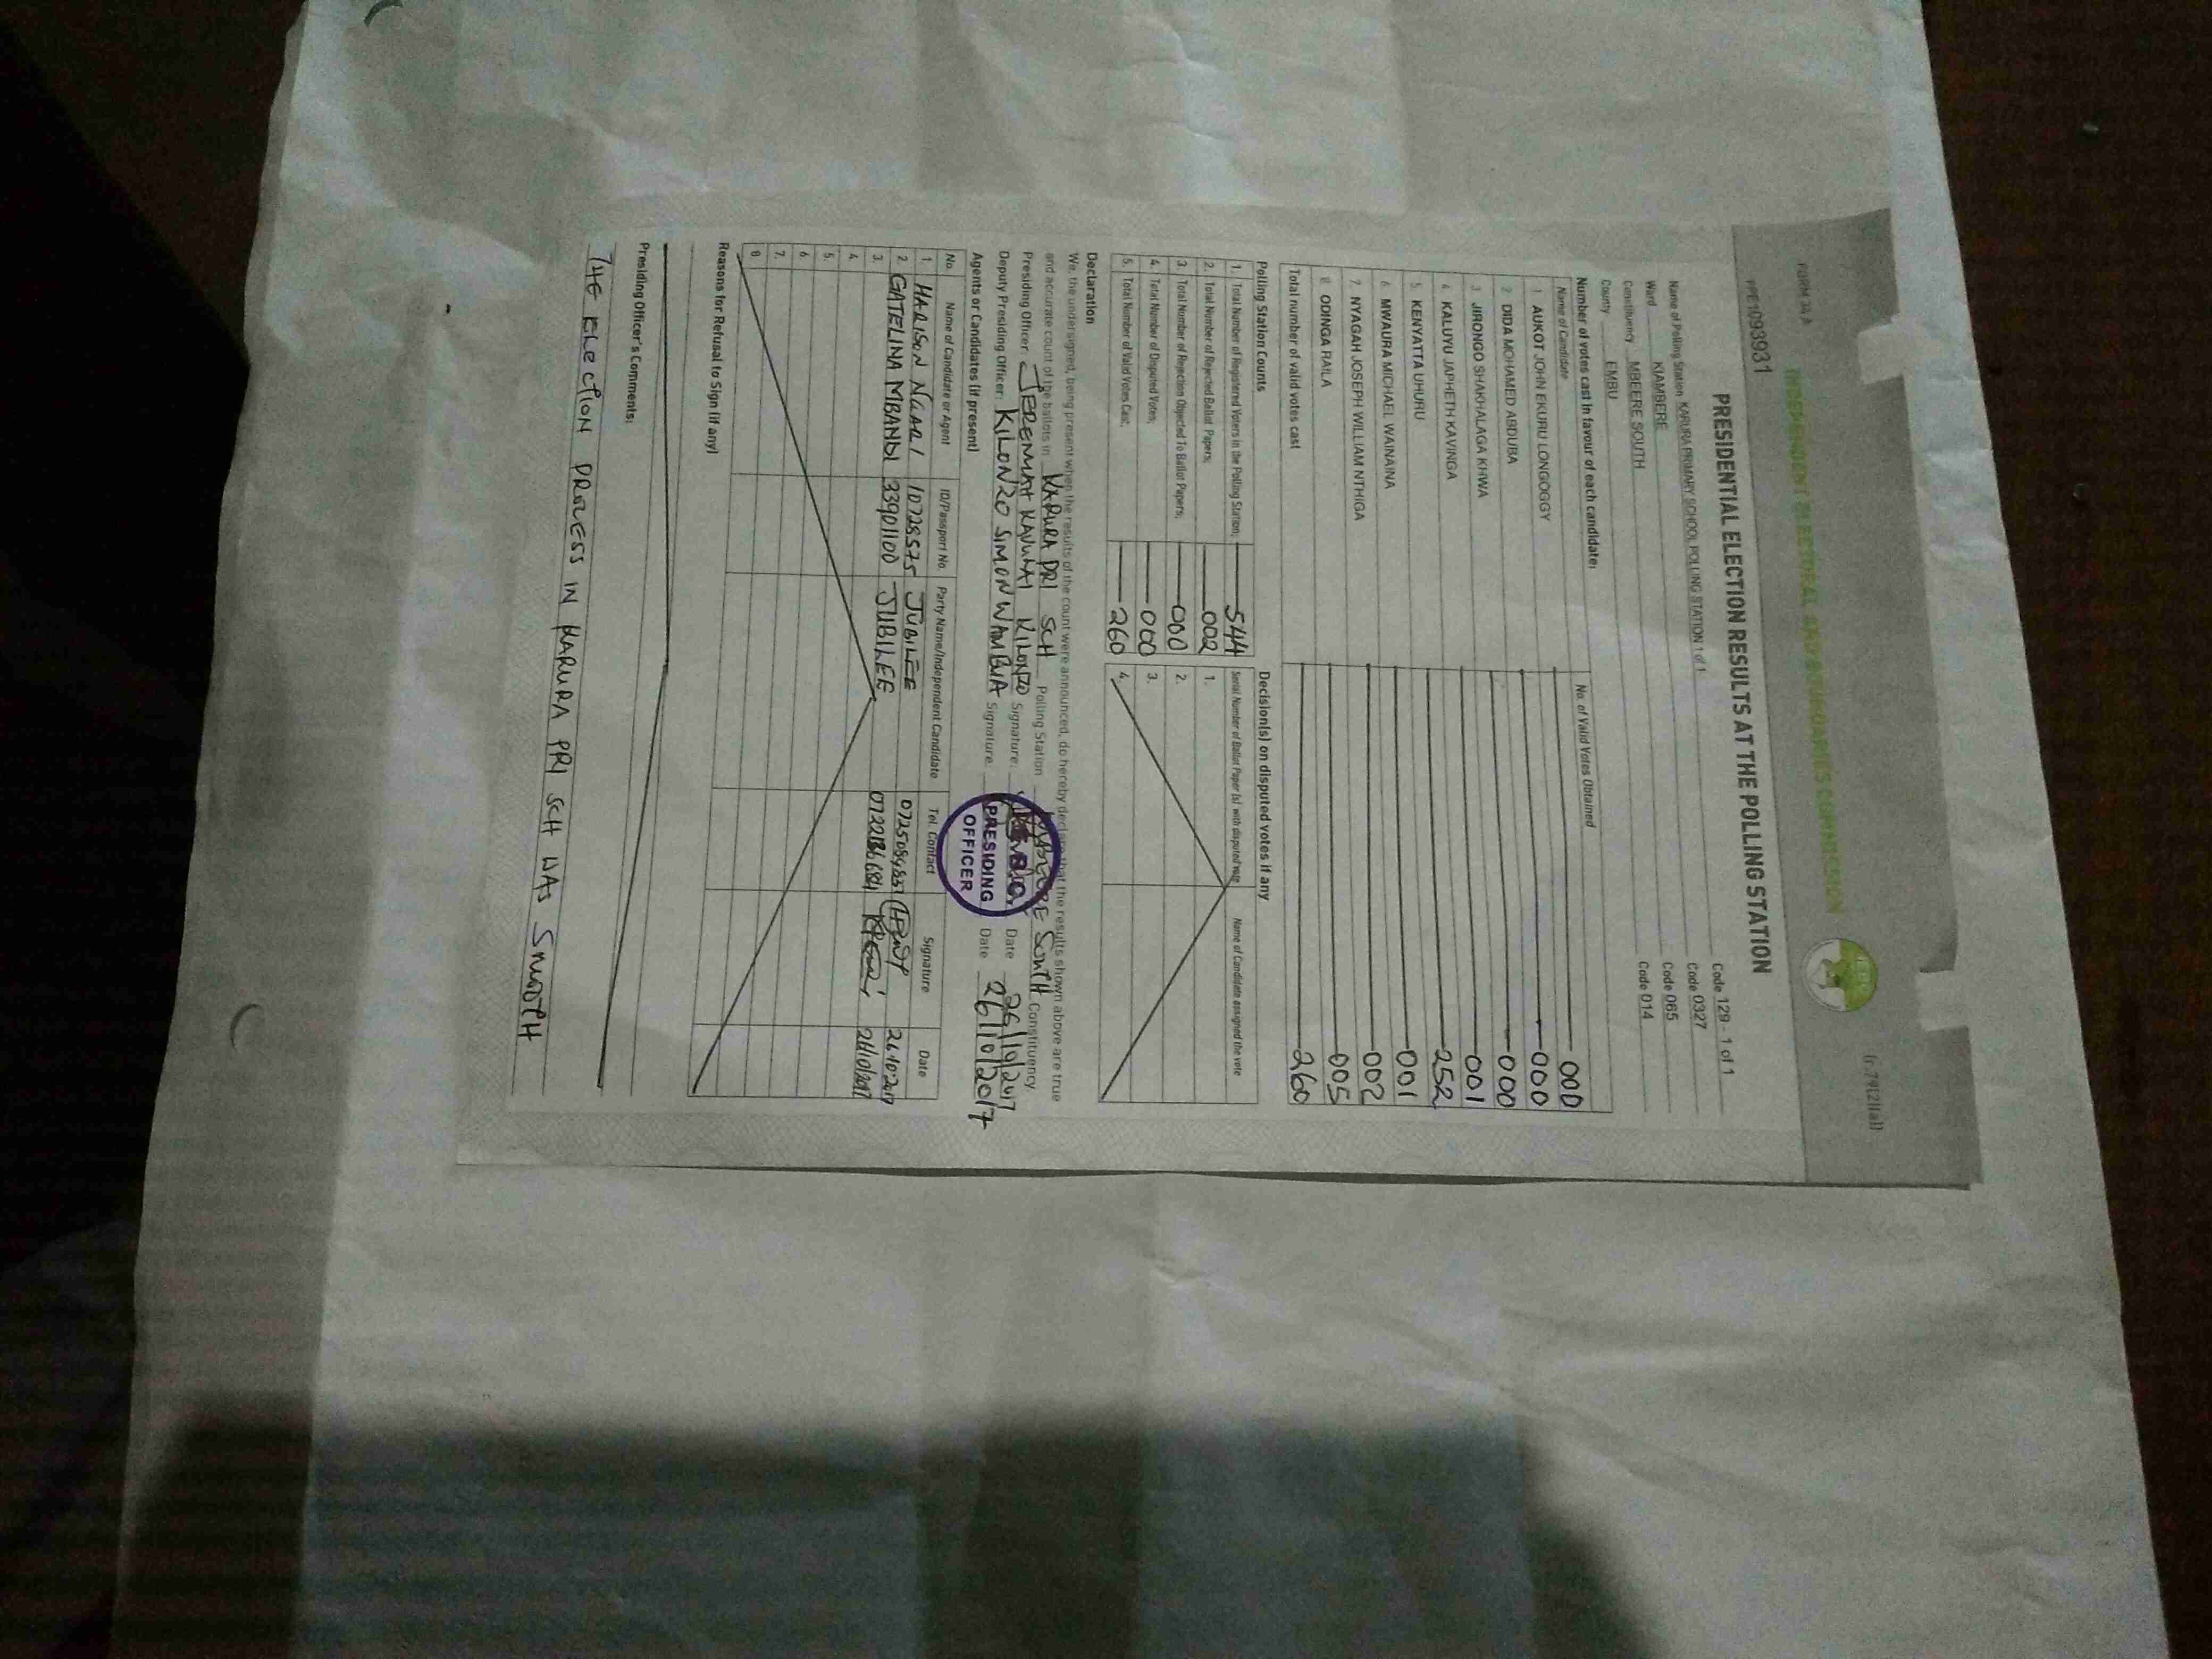 FORM 34 A
(r.79(2)(a))
INDEPENDENT ELECTORAL AND BOUNDARIES COMMISSION
PPE1093931
PRESIDENTIAL ELECTION RESULTS AT THE POLLING STATION
Name of Polling Station KARURA PRIMARY SCHOOL POLLING STATION 1 of 1 Code 129 - 1 of 1
Ward KIAMBERE Code 0327
Constituency MBEERE SOUTH Code 065
County EMBU Code 014
Number of votes cast in favour of each candidate:
Name of Candidate No. of Valid Votes Obtained
1 AUKOT JOHN EKURU LONGOGGY 000
2 DIDA MOHAMED ABDUBA 000
3 JIRONGO SHAKHALAGA KHWA 000
4 KALUYU JAPHETH KAVINGA 001
5. KENYATTA UHURU 252
6 MWAURA MICHAEL WAINAINA 001
7. NYAGAH JOSEPH WILLIAM NTHIGA 002
8 ODINGA RAILA 005
Total number of valid votes cast 260
Polling Station Counts
1. Total Number of Registered Voters in the Polling Station; 544
2. Total Number of Rejected Ballot Papers; 002
3. Total Number of Rejection Objected To Ballot Papers; 000
4. Total Number of Disputed Votes; 000
5. Total Number of Valid Votes Cast; 260
Decision(s) on disputed votes if any
Serial Number of Ballot Paper (s) with disputed vote Name of Candidate assigned the vote
1.
2.
3.
4.
Declaration
We, the undersigned, being present when the results of the count were announced, do hereby declare that the results shown above are true
and accurate count of the ballots in KARURA PRI SCH Polling Station MBEERE SOUTH Constituency
Presiding Officer: JEREMIAH KAVUVAI KILONZO Signature: Date 26/10/2017
Deputy Presiding Officer: KILONZO SIMON WAMBUA Signature: Date 26/10/2017
PRESIDING
OFFICER
Agents or Candidates (if present)
No. Name of Candidate or Agent ID/Passport No. Party Name/Independent Candidate Tel. Contact Signature Date
1 HARISON NGARI 10728575 JUBILEE 26.10.2017
2. GATELINA MBANDI 33901100 JUBILEE 26/10/2017
3.
4.
5.
6
7.
8
Reasons for Refusal to Sign (if any)
Presiding Officer's Comments:
THE ELECTION PROCESS IN KARURA PRI SCH WAS SMOOTH